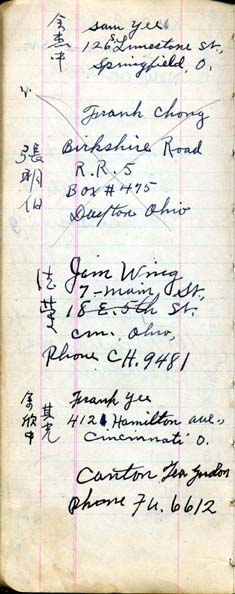 余杰中
Sam Yee
126 S Limestone St,
Springfield, O.
張明伯
Frank Chong
Birkshire Road
R.R. 5
Box # 475
Dayton Ohio
Jim Wing
7-main, St,
18 E. 5th St.
Cin., Ohio,
Phone CH. 9481
余欣中
其光
Frank Yee
4121 Hamilton ave.,
Cincinnati O.
Canton Tea Garden
Phone 7u. 6612